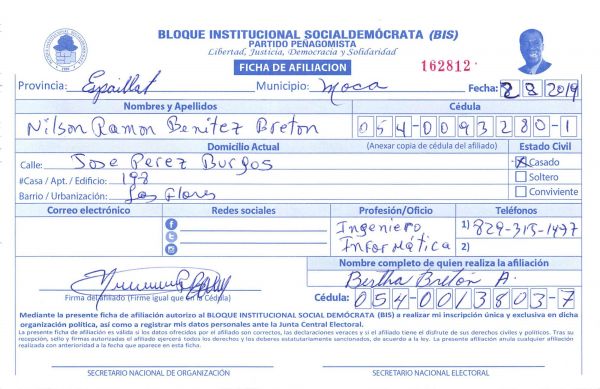 BLOQUE INSTITUCIONAL SOCIALDEMÓCRATA (BIS)
PARTIDO PEÑAGOMISTA
Libertad, Justicia, Democracia y Solidaridad
FICHA DE AFILIACION
162812
Provincia: Espaillat Municipio: Moca Fecha: 2 8 2019
Nombres y Apellidos Cédula
Nilson Ramon Benitez Breton 054-0093280-1
Domicilio Actual (Anexar copia de cédula del afiliado) Estado Civil
Calle: Jose Perez Burgos X Casado
#Casa / Apt. / Edificio: 198 Soltero
Barrio / Urbanización: Las Flores Conviviente
Correo electrónico Redes sociales Profesión/Oficio Teléfonos
Ingeniero 1) 829-315-1497
Informática 2)
Nombre completo de quien realiza la afiliación
Bertha Bretón A.
Firma del afiliado (Firme igual que en la Cédula) Cédula: 054-0013803-7
Mediante la presente ficha de afiliación autorizo al BLOQUE INSTITUCIONAL SOCIAL DEMÓCRATA (BIS) a realizar mi inscripción única y exclusiva en dicha
organización política, así como a registrar mis datos personales ante la Junta Central Electoral.
La presente ficha de afiliación es válida si los datos ofrecidos por el afiliado son correctos, las declaraciones veraces y si el afiliado tiene el disfrute de sus derechos civiles y políticos. Tras su
recepción, sello y firmas autorizadas el afiliado ejercerá todos los derechos y los deberes estatutariamente sancionados, de acuerdo a la ley. La presente afiliación anula cualquier afiliación
realizada con anterioridad a la fecha que aparece en esta ficha.
SECRETARIO NACIONAL DE ORGANIZACIÓN SECRETARIO NACIONAL ELECTORAL